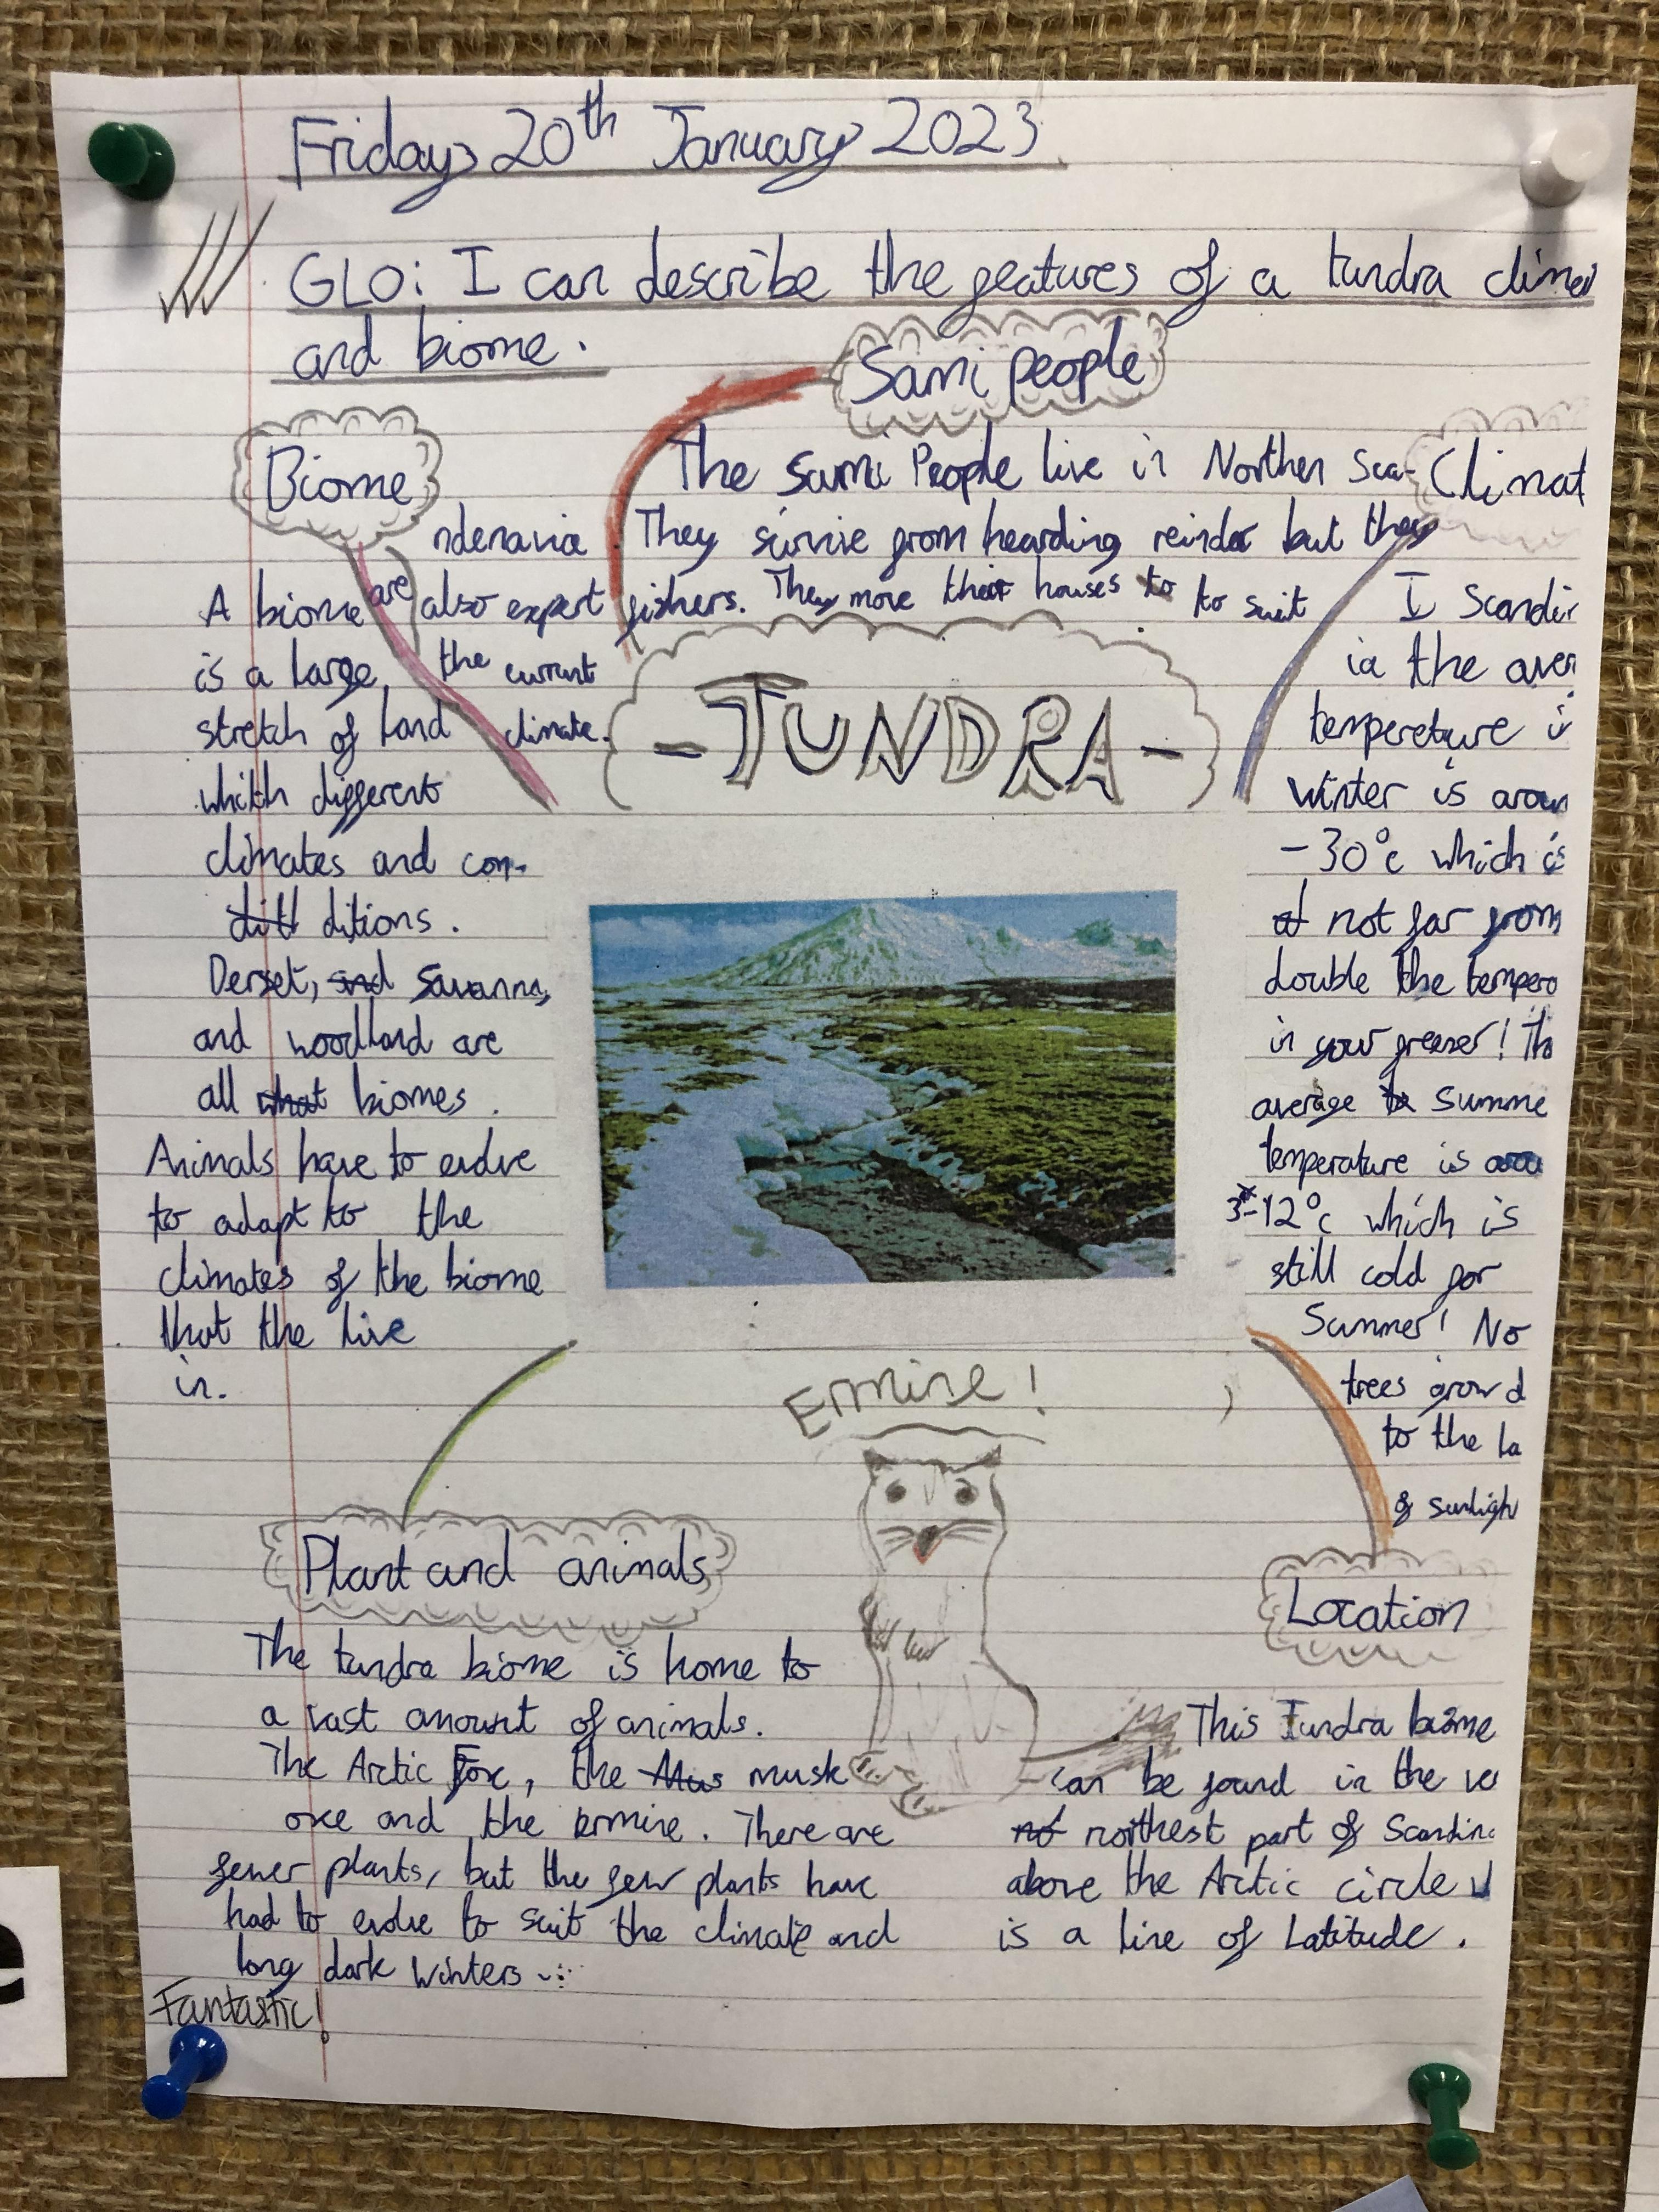 Friday 20th January 2023
GLO: I can describe the features of a tundra climat
and biome.
Sami people
The Sami People live in Northen Sca-
ndenavia They survive from hearding reindar but they
are also expert fishers. They move their houses to to suit
the current
climate.
Biome
A biome
is a large
stretch of land
whith different
climates and con-
ditt ditions.
Derset, and Savanna,
and woodland are
all what biomes.
Animals have to evolve
to adapt to the
climates of the biome
that the live
in.
-TUNDRA-
Climat
I Scandin
ia the aver
tempereture i
winter is aroun
-30°c which is
at not far from
double the tempera
in your freezer! Th
average Summe
temperature is
3-12°c which is
still cold for
Summer! No
trees grow d
to the la
of sunligh
Ermine!
Plant and animals
The tundra biome is home to
a vast amount of animals.
The Arctic Fox, the Mus musk
oxe and the ermine. There are
fewer plants, but the few plants have
had to evolve to suit the climate and
long dark winters
Fantastic!
Location
This Tundra biome
can be found in the ve
not northest part of Scandina
above the Arctic circle
is a line of Latitude.
e